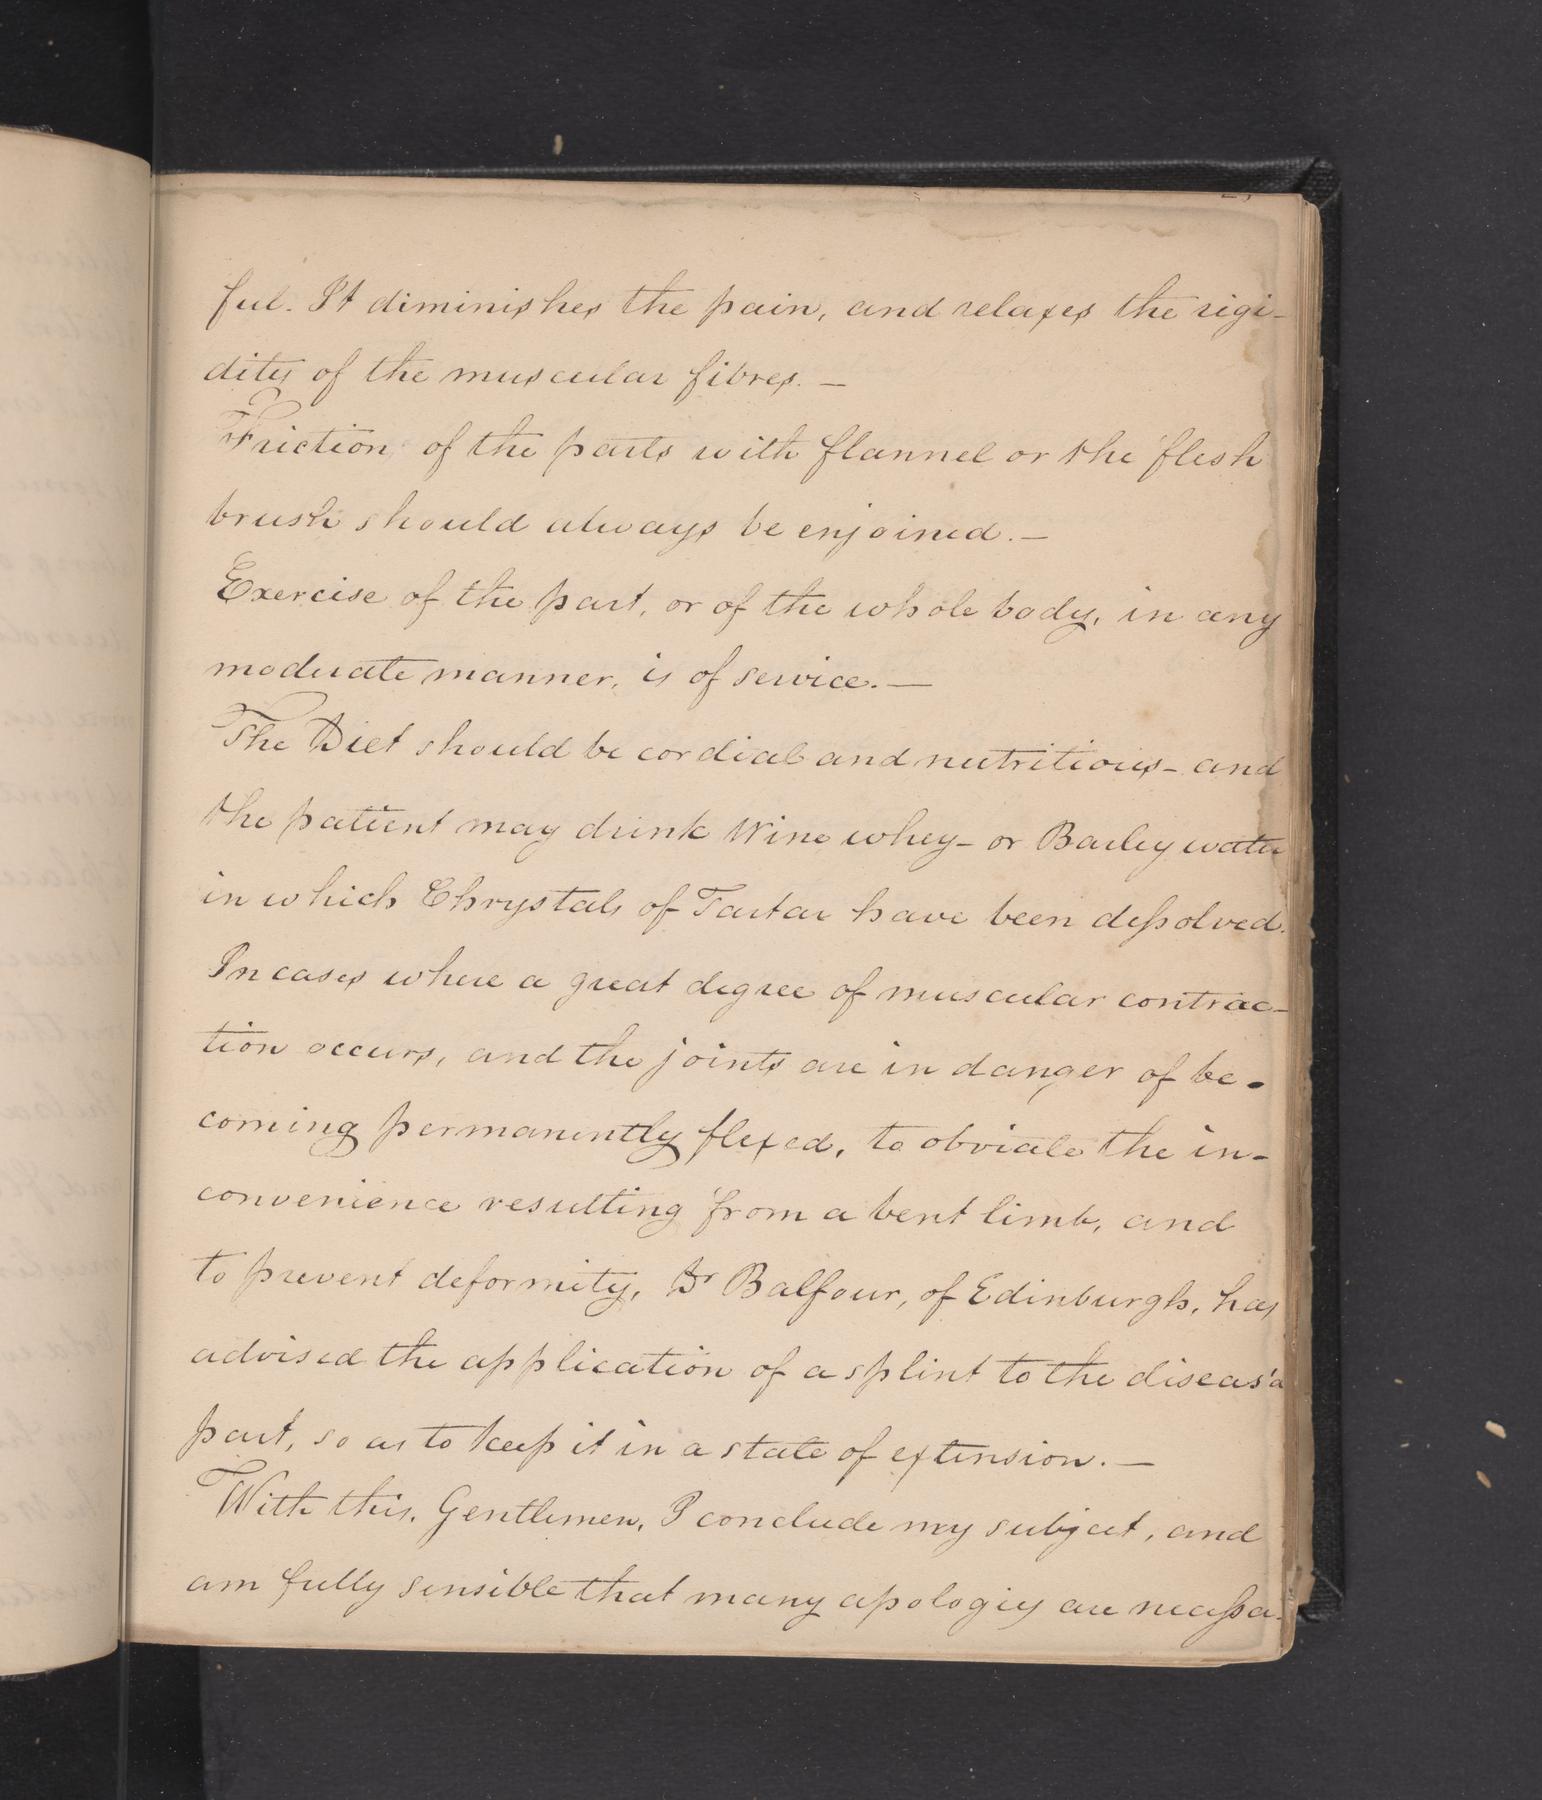 ful. It diminishes the pain, and relaxes the rigi-
dity of the muscular fibres. —
Friction of the parts with flannel or the flesh
brush should always be enjoined. —
Exercise of the part, or of the whole body, in any
moderate manner, is of service. —
The Diet should be cordial and nutritious - and
the patient may drink Wine whey - or Barley water
in which Chrystals of Tartar have been dissolved.
In cases where a great degree of muscular contrac-
tion occurs, and the joints are in danger of be-
coming permanently flexed, to obviate the in-
convenience resulting from a bent limb, and
to prevent deformity, Dr Balfour, of Edinburgh, has
advised the application of a splint to the diseas'd
part, so as to keep it in a state of extension. —
With this, Gentlemen, I conclude my subject, and
am fully sensible that many apologies are necessa-